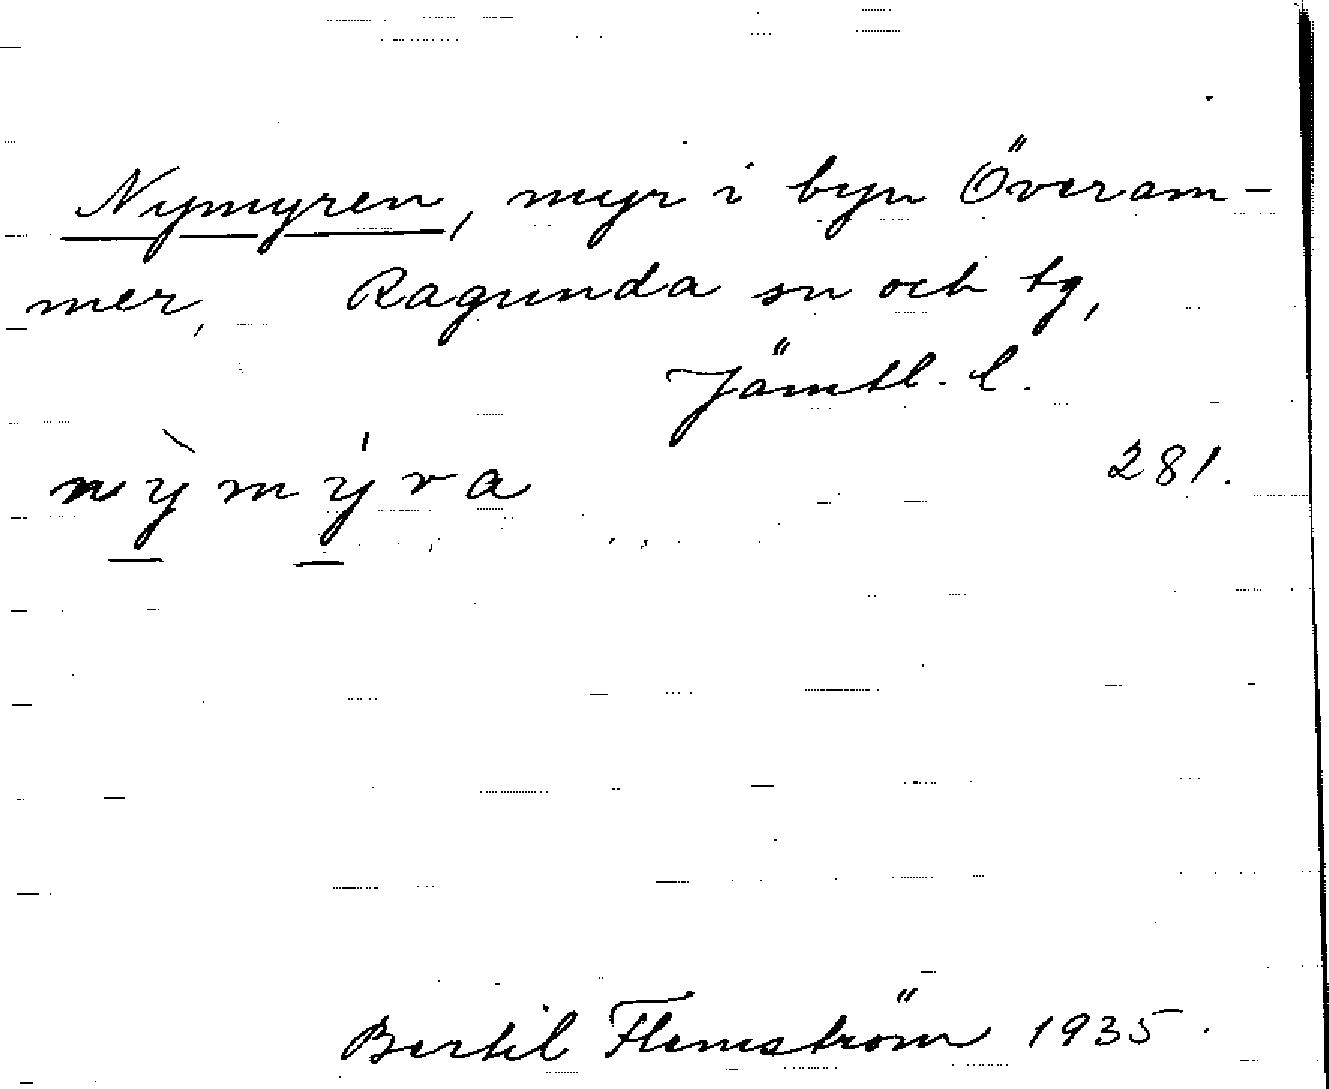 Nymyren, myr i byn Överam-
mer, Ragunda sn och tg,
Jämtl. l.
nỳmýra 281.
Bertil Flemström 1935.